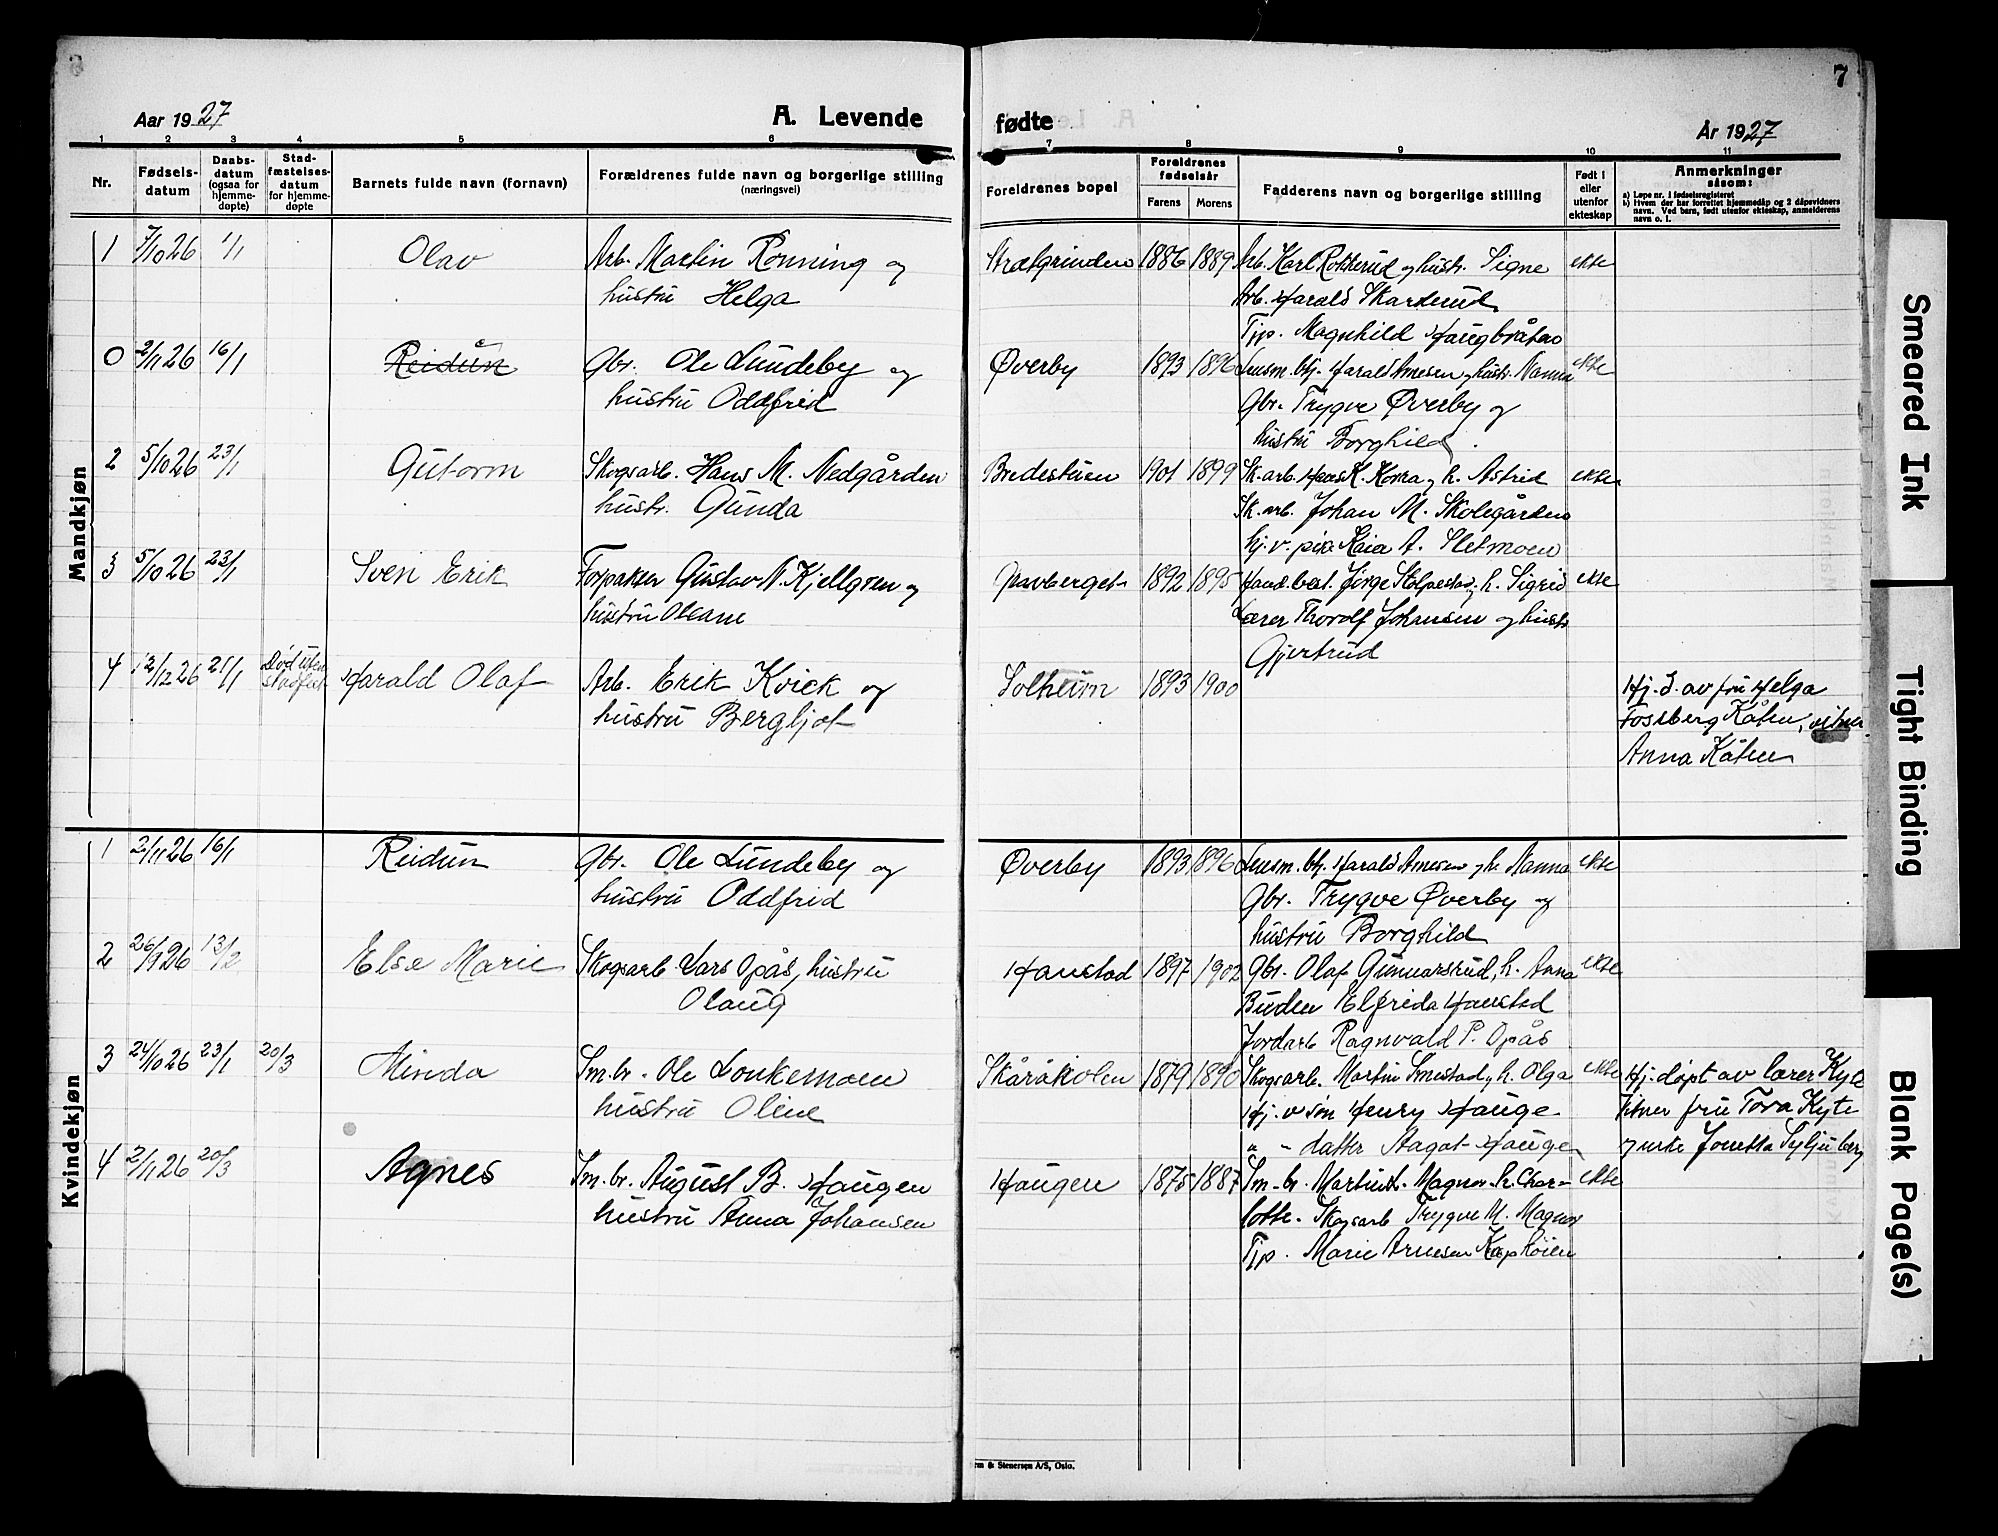 7
Aar 1927
A. Levende
fødte
År 1927
1 2 3 4 5 6 7 8 9 10 11
Nr.
Fødsels-
datum
Daabs-
datum
(ogsaa for
hjemme-
døpte)
Stad-
fæstelses-
datum
for hjemme-
døpte
Barnets fulde navn (fornavn)
Forældrenes fulde navn og borgerlige stilling
(næringsvei)
Foreldrenes bopel
Foreldrenes
fødselsår
Farens Morens
Fadderens navn og borgerlige stilling
Født i
eller
utenfor
ekteskap
Anmerkninger
såsom:
a) Løpe nr. i fødselsregisteret
b) Hvem der har forrettet hjemmedåp og 2 dåpsvidners
navn. Ved barn, født utenfor ekteskap, anmelderens
navn o. l.
Mandkjøn
1 7/10 26 1/1 Olav Arb. Martin Rønning og 1886 1889 Arb. Karl Rokkerud og hustr. Signe ekte
hustru Helga Arb. Harald Skarderud
Tjp. Magnhild Haugbråten
0 2/11 26 16/1 Reidun Gbr. Ole Lundeby og Øverby 1893 1896 Lensm. btj. Harald Arnesen og hustr. Nanna ekte
hustru Oddfrid Gbr. Trygve Øverby og
hustru Borghild.
2 5/10 26 23/1 Gutorm Skogsarb. Hans M. Nedgården Bredestuen 1901 1899 Sk. arb. Hans K. Korra og h. Astrid ekte
hustr. Gunda Sk. arb. Johan M. Skolegården
hj. v. pike Kaia A. Sletmoen
3 5/10 26 23/1 Sven Erik Forpakter Gustav N. Kjellgren og 1892 1895 Jørge Stolpestad og h. Sigrid ekte
hustru Oleane Lærer Thorolf Johansen og hustr
Gjertrud
4 12/12 26 21/1 Død uten stadfest Harald Olaf Arb. Erik Kvick og Solheim 1893 1900 Hj. d. av fru Helga
hustru Bergljot Fossberg Kåten, vitner
Anna Kåten
Kvindekjøn
1 2/11 26 16/1 Reidun Gbr. Ole Lundeby og Øverby 1893 1896 Lensm. btj. Harald Arnesen og h. Nanna ekte
hustru Oddfrid Gbr. Trygve Øverby og
hustru Borghild
2 26/9 26 13/2 Else Marie Skogsarb Lars Opås, hustru Hanstad 1897 1902 Gbr. Olaf Gunnarsrud, h. Anna ekte
Olaug Elfrida Hanstad
Jordarb Ragnvald P. Opås
3 24/10 26 23/1 20/3 Minda Sm. br. Ole Lonkemoen Skåråkolen 1879 1890 Skogsarb. Martin Smestad og h. Olga ekte Hj. døpt av lærer Kyte
hustru Oline Hj. v søn Henry Hauge Vitner fru Tora Kyte
" - datter Aagot Haugen
4 2/11 26 20/3 Agnes Sm. br. August B. Haugen Haugen 1875 1887 Sm. br. Magnor h. Char- ekte
hustru Anna Johansen lotte. Skogsarb Trygve M. Magnor
Tjp. Marie Arnesen
rm & Stenersen A/S, Oslo.
Smeared Ink
Tight Binding
Blank Page(s)